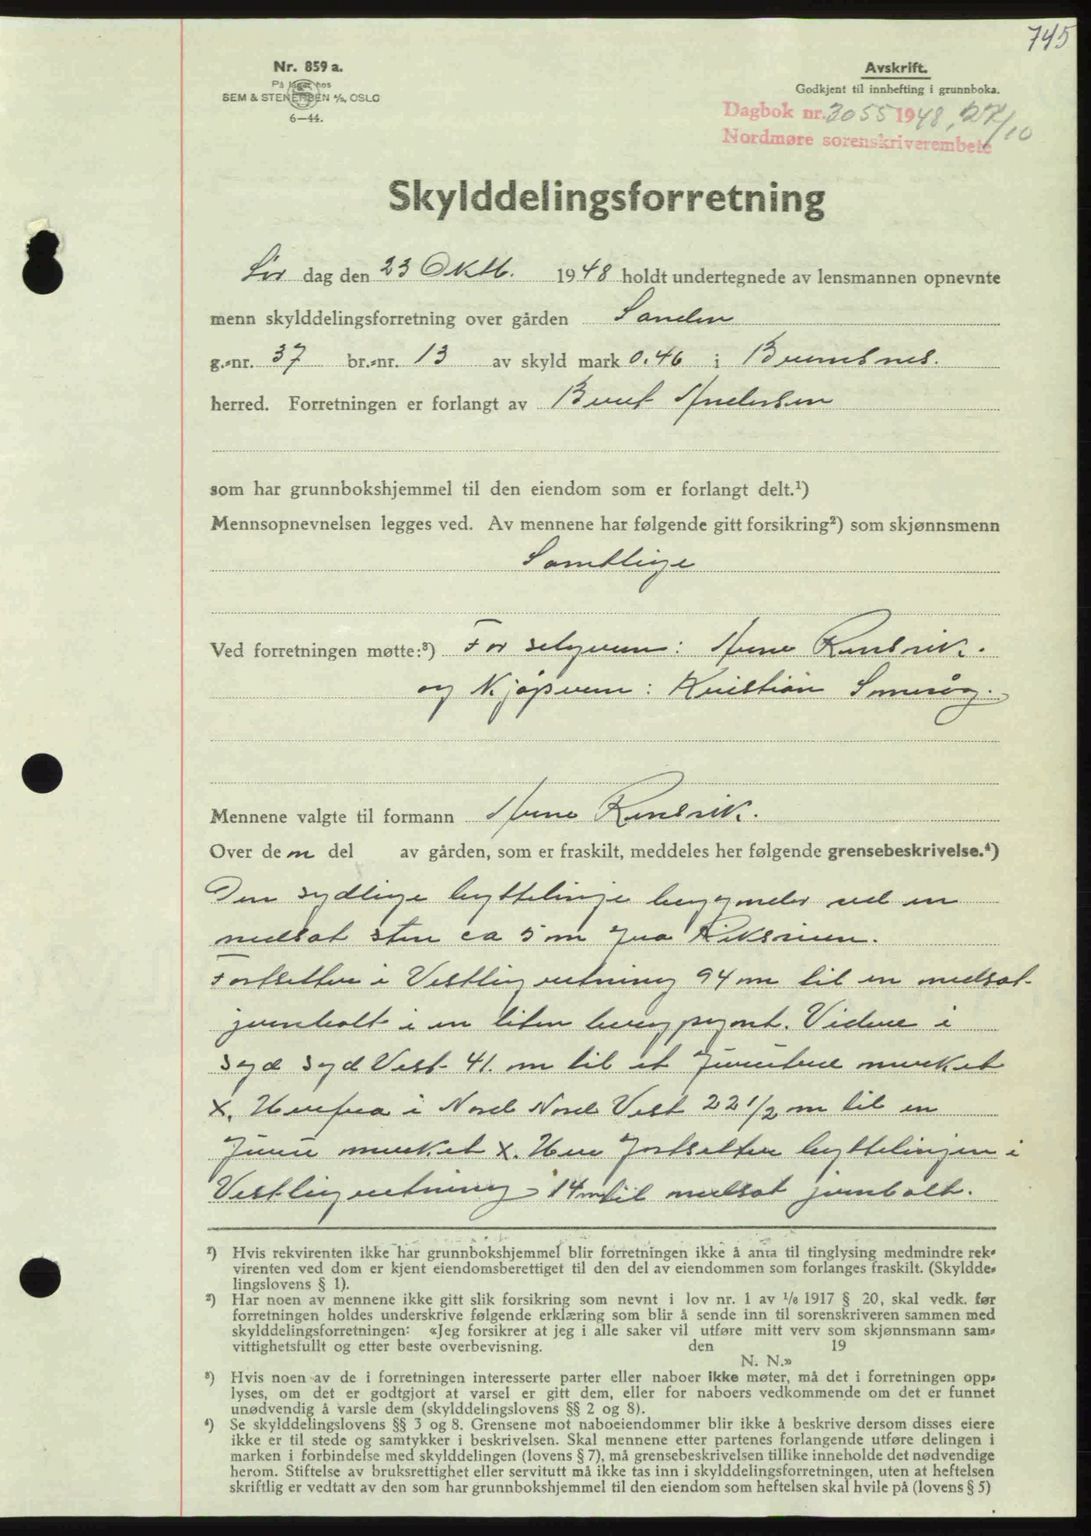 745
Nr. 859 a.
På lager hos
SEM & STENERSEN A/S, OSLO
6—44.
Avskrift.
Godkjent til innhefting i grunnboka.
Dagbok nr. 3055 1948, 27/10
Nordmøre sorenskriverembete
Skylddelingsforretning
Lør dag den 23 Oktb. 1948 holdt undertegnede av lensmannen opnevnte
menn skylddelingsforretning over gården Sanden
g.-nr. 37 br.-nr. 13 av skyld mark 0.46 i Bremsnes.
herred. Forretningen er forlangt av Berit Andersen
som har grunnbokshjemmel til den eiendom som er forlangt delt.¹)
Mennsopnevnelsen legges ved. Av mennene har følgende gitt forsikring²) som skjønnsmenn
Samtlige
Ved forretningen møtte:³) For selgeren: Arne
og Kjøperen: Kristian
Mennene valgte til formann Arne
Over den del av gården, som er fraskilt, meddeles her følgende grensebeskrivelse.⁴)
Den sydlige byttelinje begynder ved en
nedsat sten ca 5 m fra Riksveien.
Fortsetter i Vestlig retning 94 m til en nedsat
jernbolt i en liten berg. Videre i
Syd Syd Vest 41. m til et furutre merket
X. Herfra i Nord Nord Vest 22 1/2 m til en
furu merket X. Her fortsetter byttelinjen i
Vestlig retning 14 m til nedsat jernbolt.
¹) Hvis rekvirenten ikke har grunnbokshjemmel blir forretningen ikke å anta til tinglysing medmindre rek-
virenten ved dom er kjent eiendomsberettiget til den del av eiendommen som forlanges fraskilt. (Skyldde-
lingslovens § 1).
²) Har noen av mennene ikke gitt slik forsikring som nevnt i lov nr. 1 av 1/6 1917 § 20, skal vedk. før
forretningen holdes underskrive følgende erklæring som blir å sende inn til sorenskriveren sammen med
skylddelingsforretningen: «Jeg forsikrer at jeg i alle saker vil utføre mitt verv som skjønnsmann sam-
vittighetsfullt og etter beste overbevisning. den 19
N. N.»
³) Hvis noen av de i forretningen interesserte parter eller naboer ikke møter, må det i forretningen opp-
lyses, om det er godtgjort at varsel er gitt dem, eller for naboers vedkommende om det er funnet
unødvendig å varsle dem (skylddelingslovens §§ 2 og 8).
⁴) Se skylddelingslovens §§ 3 og 8. Grensene mot naboeiendommer blir ikke å beskrive dersom disses eiere
ikke er til stede og samtykker i beskrivelsen. Skal mennene etter partenes forlangende utføre delingen i
marken i forbindelse med skylddelingen (lovens § 7), må grensebeskrivelsen tillike inneholde det nødvendige
herom. Stiftelse av bruksrettighet eller servitutt må ikke tas inn i skylddelingsforretningen, uten at heftelsen
skriftlig er vedtatt av den som har grunnbokshjemmel til den eiendom som heftelsen skal hvile på (lovens § 5)